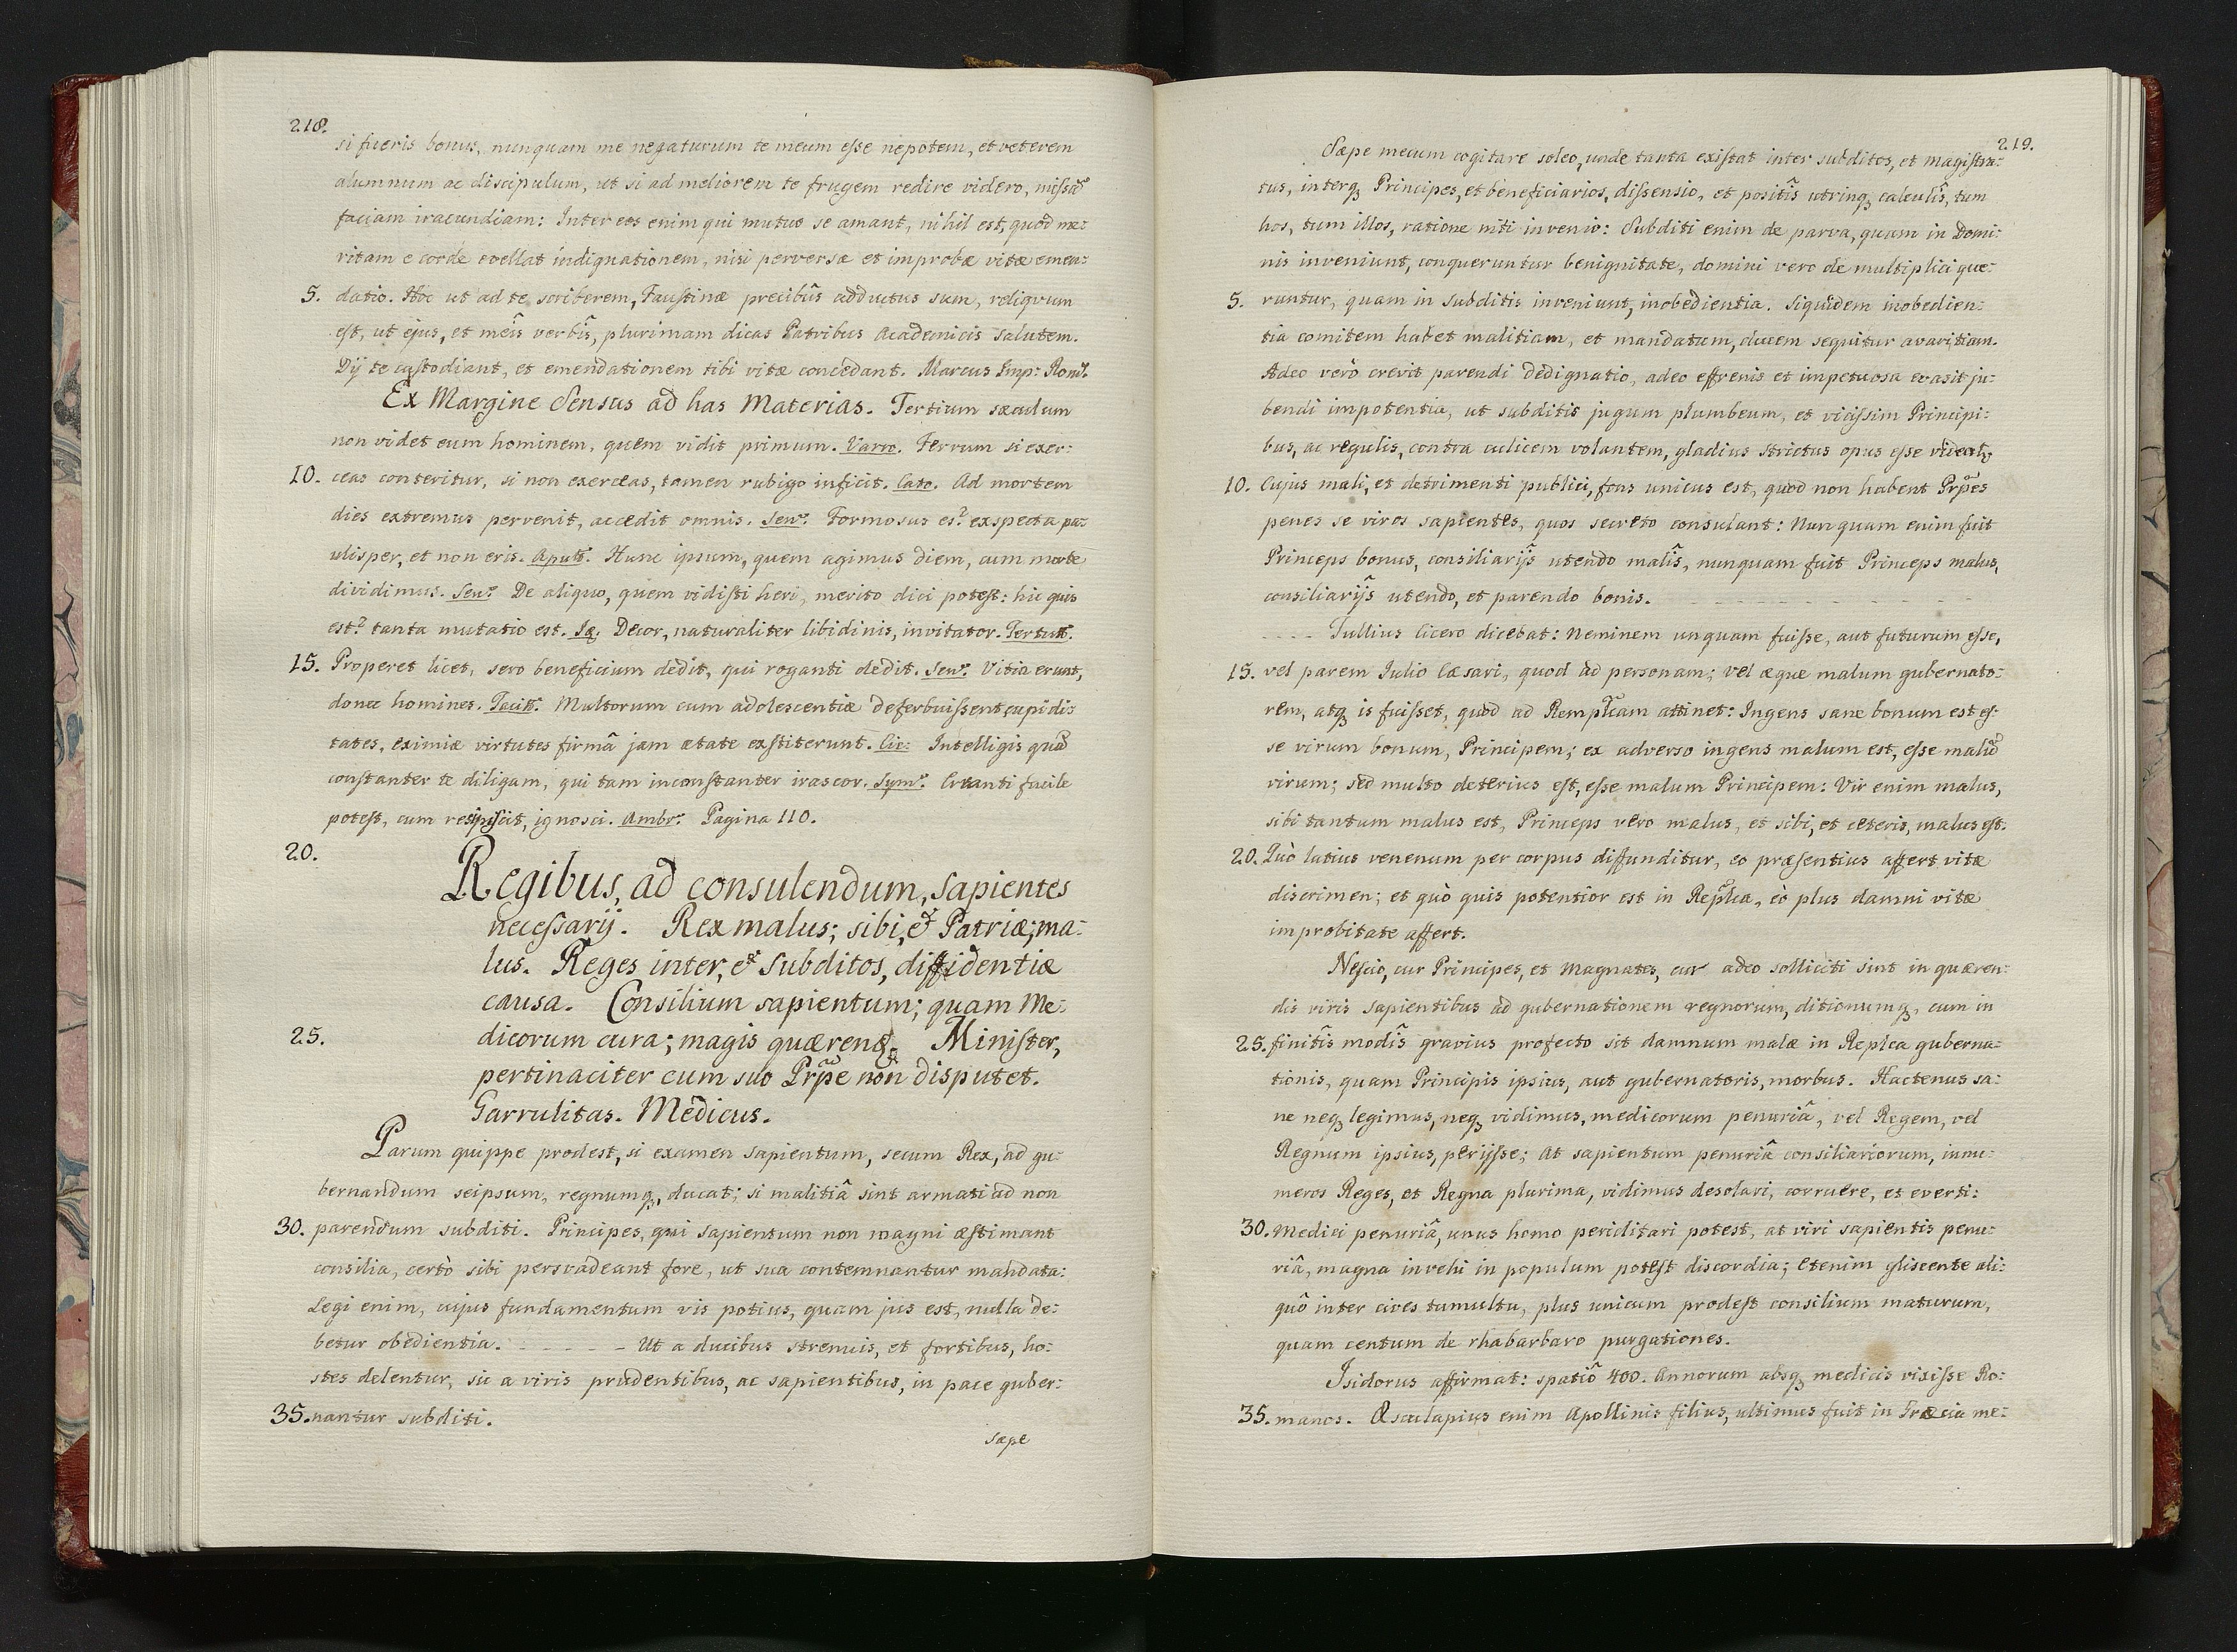 218.
si fueris bonus, nunquam me negaturum te meum esse nepotem, et veterem
alumnum ac discipulum, ut si ad meliorem te frugem redire videro, missã
faciam iracundiam: Inter eos enim qui mutuo se amant, nihil est, quod me:
ritam e corde evellat indignationem, nisi perversæ et improbæ vitæ emen:
5. datio. Hoc ut ad te scriberem, Faustinæ precibûs adductus sum, reliqvum
est, ut ejus, et meîs verbîs, plurimam dicas Patribus Academicis salutem.
Dij te custodiant, et emendationem tibi vitæ concedant. Marcus Imp: Rom:
Ex Margine Sensus ad has Materias. Tertium sæculum
non videt eum hominem, quem vidit primum. Varro. Ferrum si exer:
10. ceas conteritur, si non exerceas, tamen rubigo inficit. Cato. Ad mortem
dies extremus pervenit, accedit omnis. Sen: Formosus es? exspecta pa:
ulisper, et non eris. Apul: Hunc ipsum, quem agimus diem, cum morte
dividimus. Sen: De aliquo, quem vidisti heri, merito dici potest: hic quis
est? tanta mutatio est. Decor, naturaliter libidinis, invitator. Tertull.
15. Properet licet, sero beneficium dedit, qui roganti dedit. Sen: Vitia erunt,
donec homines. Tacit: Multorum cum adolescentiæ deferbuissent cupidi:
tates, eximiæ virtutes firmâ jam ætate exstiterunt. Cic: Intelligis quã
constanter te diligam, qui tam inconstanter irascor. Sym: Erranti facile
potest, cum resipiscit, ignosci. Ambr: Pagina 110.
20.
Regibus, ad consulendum, sapientes
necessarij. Rex malus; sibi, & Patriæ; ma:
lus. Reges inter, & Subditos, diffidentiæ
causa. Consilium sapientum; quam Me:
25. dicorum cura; magis quærend. Minister,
pertinaciter cum suo Prpe non disputet.
Garrulitas. Medicus.
Parum quippe prodest, si examen sapientum, secum Rex, ad gu:
bernandum seipsum, regnumq, ducat; si malitiâ sint armati ad non
30. parendum subditi. Principes, qui sapientum non magni æstimant
consilia, certò sibi persvadeant fore, ut sua contemnantur mandata:
Legi enim, cujus fundamentum vis potius, quam jus est, nulla de:
betur obedientia. - - - - - Ut a ducibus strenuis, et fortibus, ho:
stes delentur, sic a viris prudentibus, ac sapientibus, in pace guber:
35. nantur subditi.
sæpe
219.
Sæpe mecum cogitare soleo, unde tanta existat inter subditos, et magistra:
tus, interq Principes, et beneficiarios, dissensio, et positîs utrinq calculîs, tum
hos, tum illos, ratione niti invenio: Subditi enim de parva, quam in Domi:
nis inveniunt, conqueruntur benignitate, domini vero de multiplici que:
5. runtur, quam in subditis inveniunt, inobedientia. Siquidem inobedien:
tia comitem habet malitiam, et mandatum, ducem sequitur avaritiam.
Adeo verò crevit parendi dedignatio, adeo effrenis et impetuosa evasit ju:
bendi impotentia, ut subditis jugum plumbeum, et vicissim Principi:
bus, ac regulis, contra culicem volantem, gladius strictus opus esse videat.
10. Cujus mali, et detrimenti publici, fons unicus est, quod non habent Prpes
penes se viros sapientes, quos secreto consulant: Nunquam enim fuit
Princeps bonus, consiliarijs utendo malîs, nunquam fuit Princeps malus,
consiliarijs utendo, et parendo bonis. - - - - - - - - - -
- - - - Tullius Cicero dicebat: Neminem unquam fuisse, aut futurum esse,
15. vel parem Julio Cæsari, quod ad personam; vel æque malum gubernato:
rem, atq is fuisset, quod ad Rempcam attinet: Ingens sane bonum est es:
se virum bonum, Principem; ex adverso ingens malum est, esse malũ
virum; sed multo deterius est, esse malum Principem: Vir enim malus,
sibi tantum malus est, Princeps vero malus, et sibi, et ceteris, malus est.
20. Quò latius venenum per corpus diffunditur, eo præsentius affert vitæ
discrimen; et quò quis potentior est in Replca, eò plus damni vitæ
improbitate affert.
Nescio, cur Principes, et magnates, cur adeo solliciti sint in quæren:
dis viris sapientibus ad gubernationem regnorum, ditionumq, cum in
25. finitîs modîs gravius profecto sit damnum malæ in Replca guberna:
tionis, quam Principis ipsius, aut gubernatoris, morbus. Hactenus sa:
ne neq legimus, neq vidimus, medicorum penuriâ, vel Regem, vel
Regnum ipsius, perijsse; At sapientum penuriâ consiliariorum, innu:
meros Reges, et Regna plurima, vidimus desolari, corruere, et everti:
30. Medici penuriâ, unus homo periclitari potest, at viri sapientis penu:
riâ, magna invehi in populum potest discordia; Etenim gliscente ali:
quô inter cives tumultu, plus unicum prodest consilium maturum,
quam centum de rhabarbaro purgationes.
Isidorus affirmat: spatiô 400. Annorum absq medicis vixisse Ro:
35. manos. Æsculapius enim Apollinis filius, ultimus fuit in Græcia me: